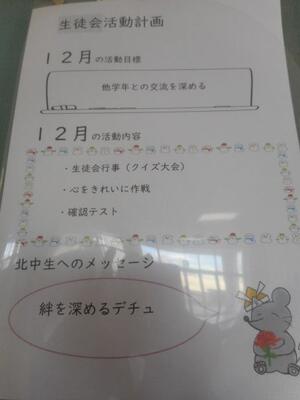 生徒会活動計画
12月の活動目標
他学年との交流を深める
12月の活動内容
・生徒会行事(クイズ大会)
・心をきれいに作戦
・確認テスト
北中生へのメッセージ
絆を深めるデチュ